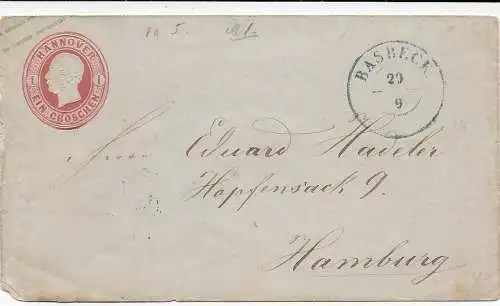 HANNOVER
1 1
EIN GROSCHEN
No 5.
BASBECK
20
9
Herrn Eduard Hadeler
Hopfensack 9.
Hamburg